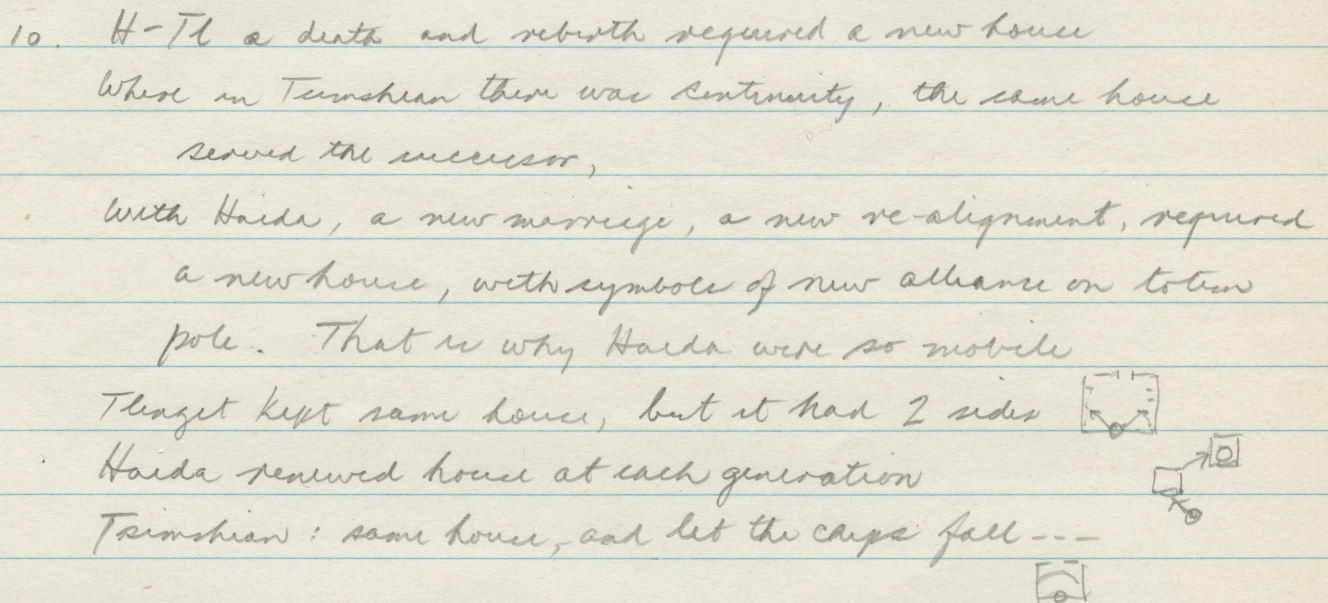 10. H-Tl a death and rebirth required a new house
Where in Tsimshian there was continuity, the same house
served the successor,
With Haida, a new marriage, a new re-alignment, required
a new house, with symbols of new alliance on totem
pole. That is why Haida were so mobile
Tlinget kept same house, but it had 2 sides
Haida renewed house at each generation
Tsimshian: same house, and let the chips fall ---